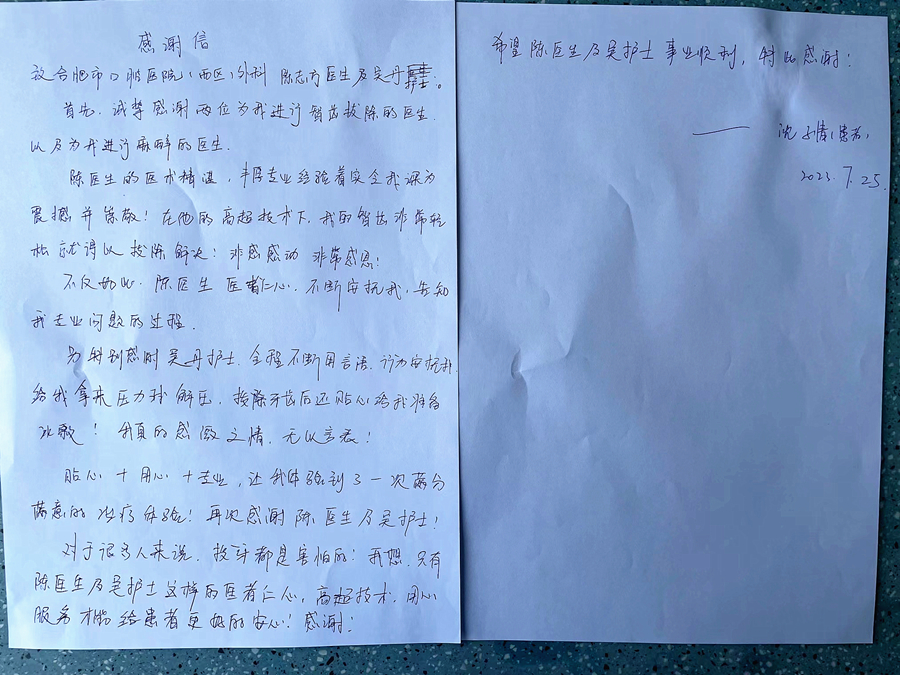 感谢信
致合肥市口腔医院(西区)外科 陈志方医生及吴丹护士:
首先,诚挚感谢两位为我进行智齿拔除的医生
以及为我进行麻醉的医生.
陈医生的医术精湛,丰厚专业经验着实令我深为
震撼并崇敬!在他的高超技术下,我的智齿非常轻
松就得以拔除解决!非感感动 非常感恩!
不仅如此,陈医生 医者仁心,不断安抚我,告知
我专业问题的过程.
另特别感谢吴丹护士,全程不断用言语、行为安抚我,
给我拿来压力球解压,拔除牙齿后还贴心给我准备
冰敷!我真的感激之情,无以言表!
贴心+用心+专业,让我体验到了一次满分
满意的治疗体验!再次感谢陈医生及吴护士!
对于很多人来说,拔牙都是害怕的!我想,只有
陈医生及吴护士这样的医者仁心,高超技术,用心
服务才能给患者更好的安心!感谢!
希望陈医生及吴护士事业顺利,特此感谢!
—— 沈子倩(患者)
2023.7.25.